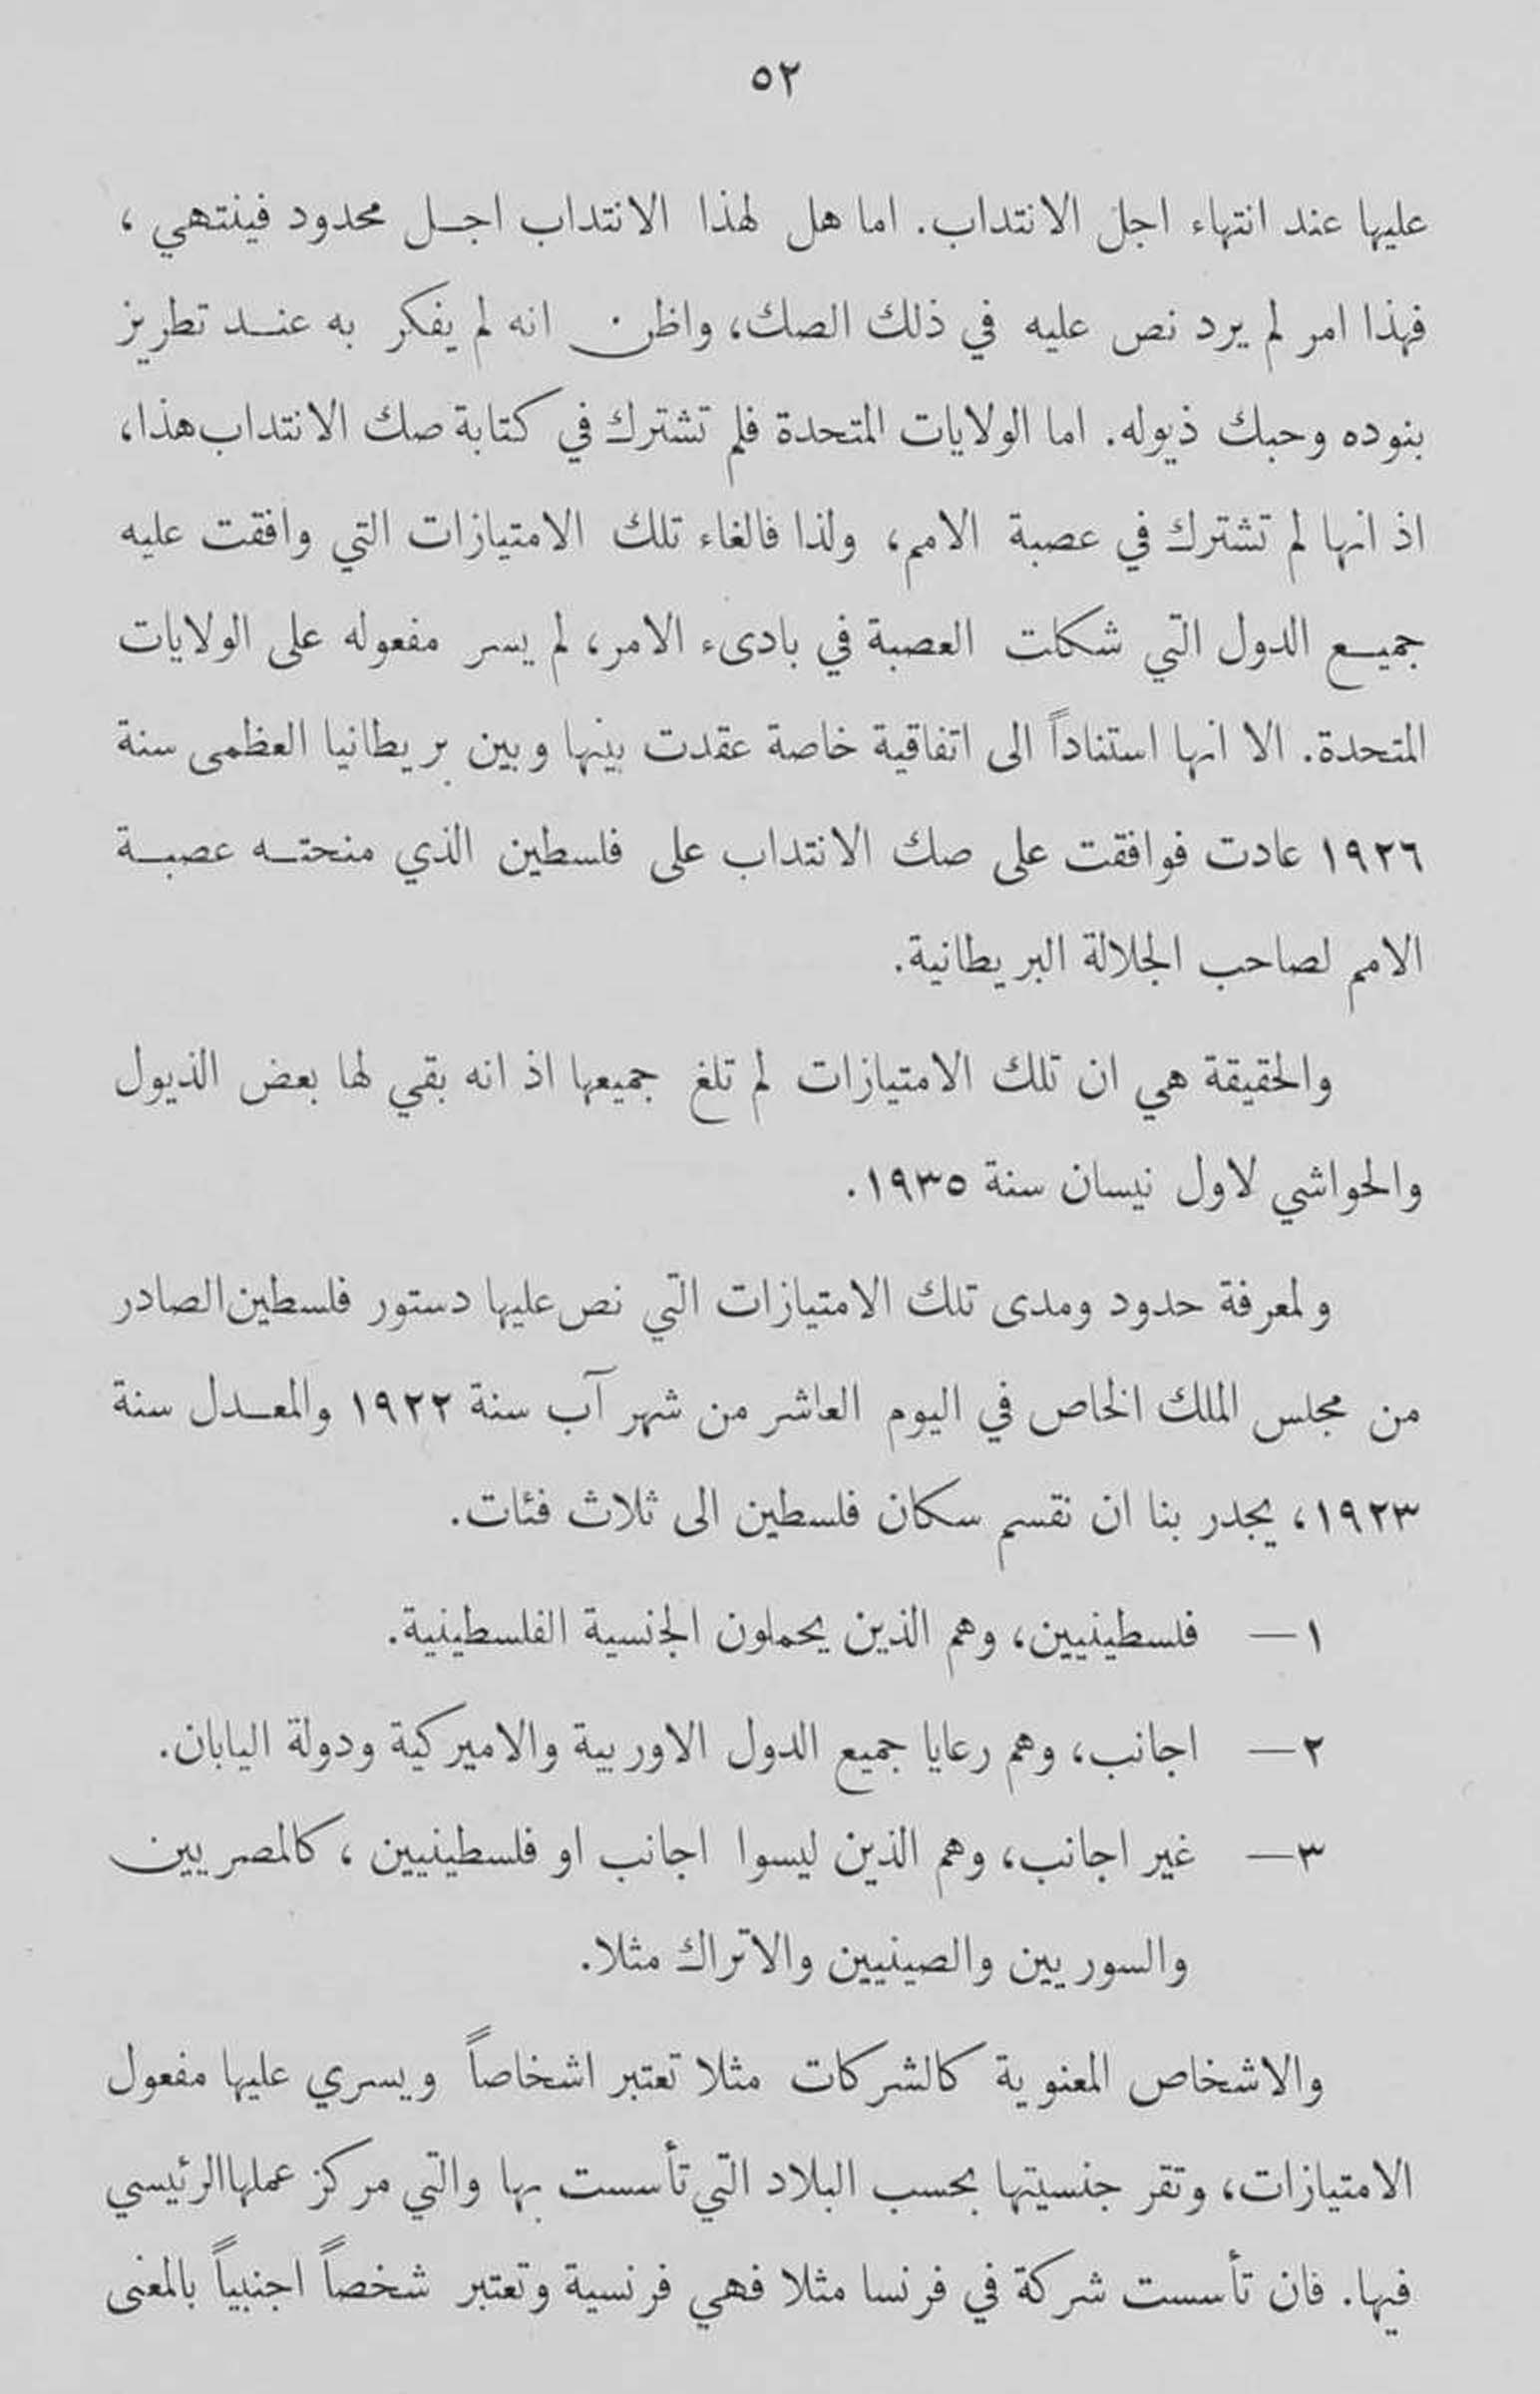 ٥٢
عليها عند انتهاء اجل الانتداب. اما هل لهذا الانتداب اجل محدود فينتهي ،
فهذا امر لم يرد نص عليه في ذلك الصك، واظن انه لم يفكر به عند تطريز
بنوده وحبك ذيوله. اما الولايات المتحدة فلم تشترك في كتابة صك الانتداب هذا،
اذ انها لم تشترك في عصبة الامم، ولذا فالغاء تلك الامتيازات التي وافقت عليه
جميع الدول التي شكلت العصبة في بادىء الامر، لم يسر مفعوله على الولايات
المتحدة. الا انها استناداً الى اتفاقية خاصة عقدت بينها وبين بريطانيا العظمى سنة
١٩٢٦ عادت فوافقت على صك الانتداب على فلسطين الذي منحته عصبة
الامم لصاحب الجلالة البريطانية.
والحقيقة هي ان تلك الامتيازات لم تلغ جميعها اذ انه بقي لها بعض الذيول
والحواشي لاول نيسان سنة ١٩٣٥.
ولمعرفة حدود ومدى تلك الامتيازات التي نص عليها دستور فلسطين الصادر
من مجلس الملك الخاص في اليوم العاشر من شهر آب سنة ١٩٢٢ والمعدل سنة
١٩٢٣، يجدر بنا ان نقسم سكان فلسطين الى ثلاث فئات.
١— فلسطينيين، وهم الذين يحملون الجنسية الفلسطينية.
٢— اجانب، وهم رعايا جميع الدول الاوربية والاميركية ودولة اليابان.
٣— غير اجانب، وهم الذين ليسوا اجانب او فلسطينيين ، كالمصريين
والسوريين والصينيين والاتراك مثلا.
والاشخاص المعنوية كالشركات مثلا تعتبر اشخاصاً ويسري عليها مفعول
الامتيازات، وتقر جنسيتها بحسب البلاد التي تأسست بها والتي مركز عملها الرئيسي
فيها. فان تأسست شركة في فرنسا مثلا فهي فرنسية وتعتبر شخصاً اجنبياً بالمعنى